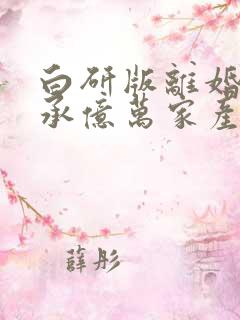 白研版離婚
承億萬家產
薛彤